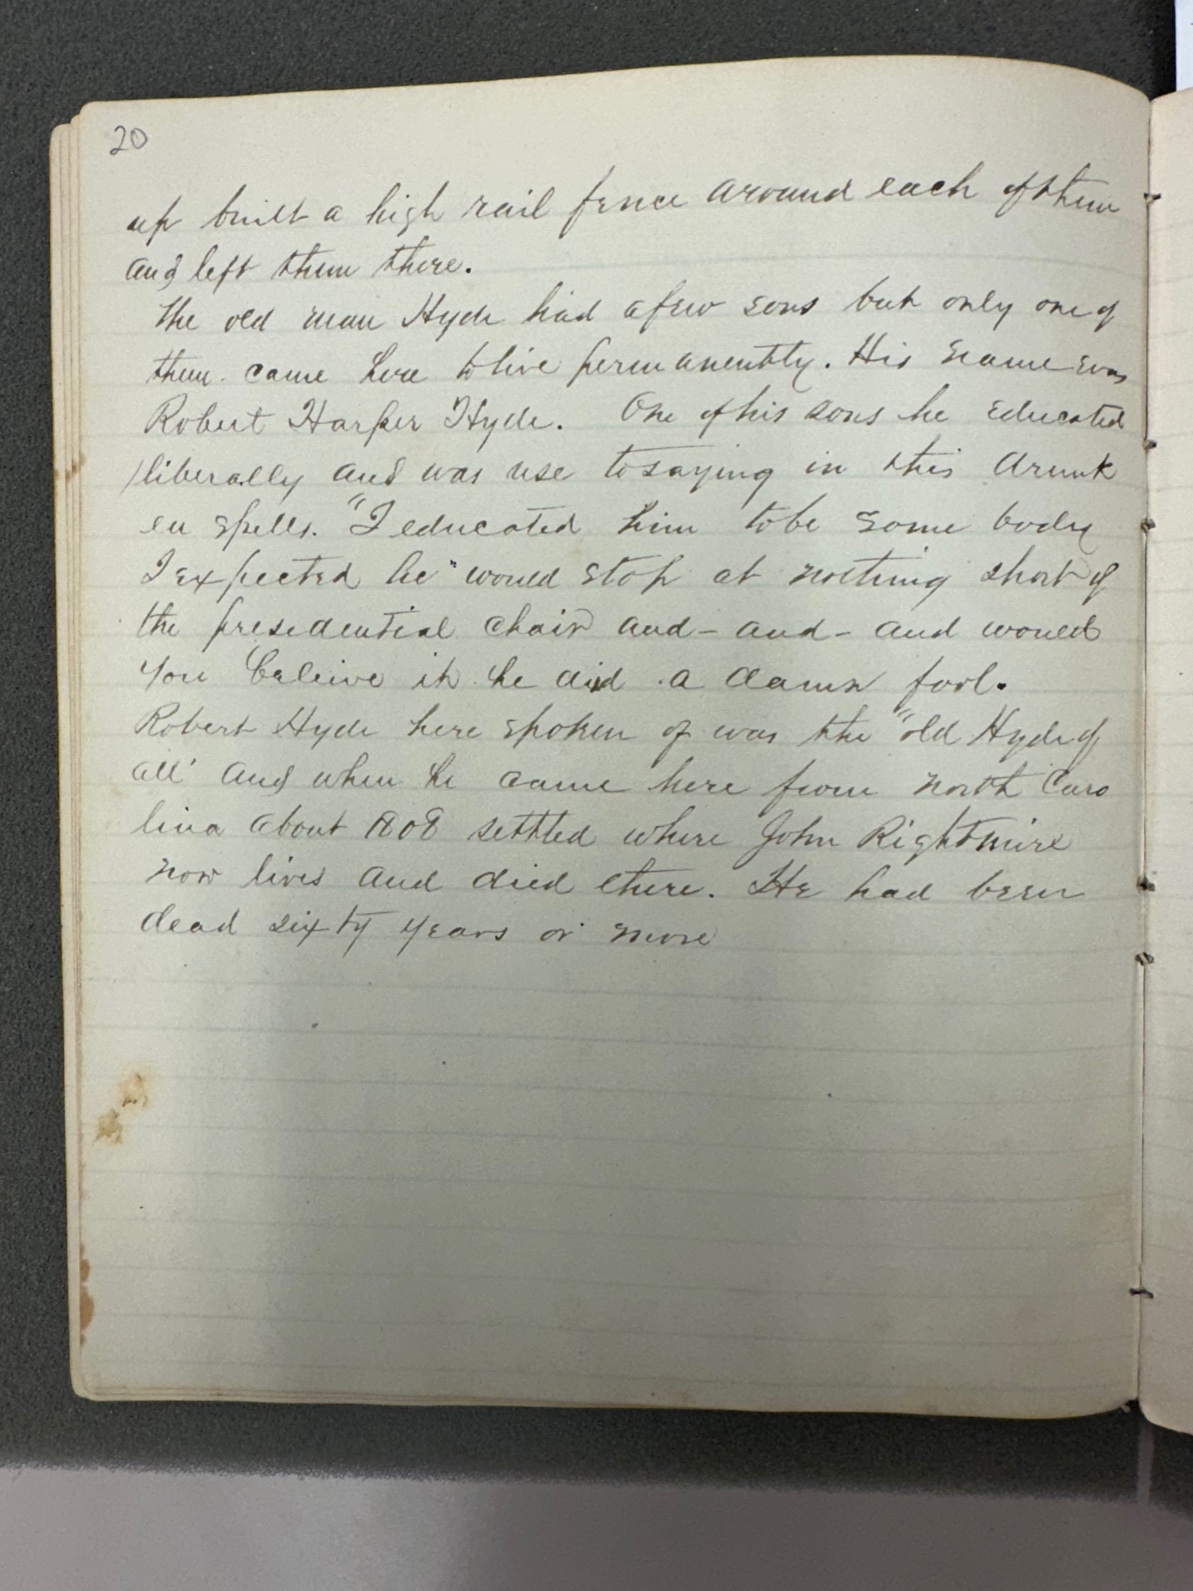 20
up built a high rail fence around each of them
and left them there.
The old man Hyde had a few sons but only one of
them came here to live permanently. His name was
Robert Harper Hyde. One of his sons he educated
liberally and was use to saying in this drunk
en spells. "I educated him to be some body
I expected he" would stop at nothing short of
the presidential chair and - and - and would
you beleive it he did a damn fool.
Robert Hyde here spoken of was the "old Hyde of
all' and when he came here from North Caro
lina about 1808 settled where John Rightmire
now lives and died there. He had been
dead sixty years or more